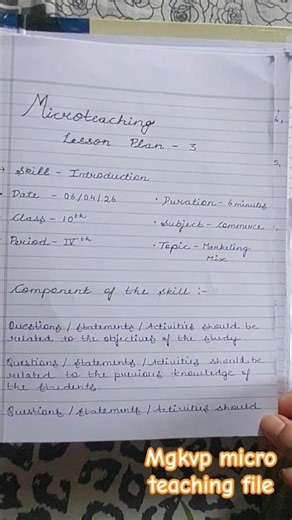 Microteaching
Lesson Plan - 3
Skill - Introduction
Date - 06/04/26
Duration - 6 minutes
Class - 10th
Subject - Commerce
Period - IVth
Topic - Marketing Mix
Component of the skill :-
Questions / Statements / Activities should be
related to the objectives of the study
Questions / Statements / Activities should be
related to the previous knowledge of
the students
Questions / Statements / Activities should
6,
5,
Mgkvp micro
teaching file